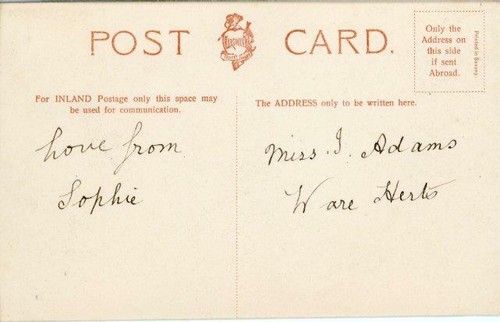 POST CARD.
Only the
Address on
this side
if sent
Abroad.
For INLAND Postage only this space may
be used for communication.
The ADDRESS only to be written here.
Love from
Sophie
Miss. J. Adams
Ware Herts